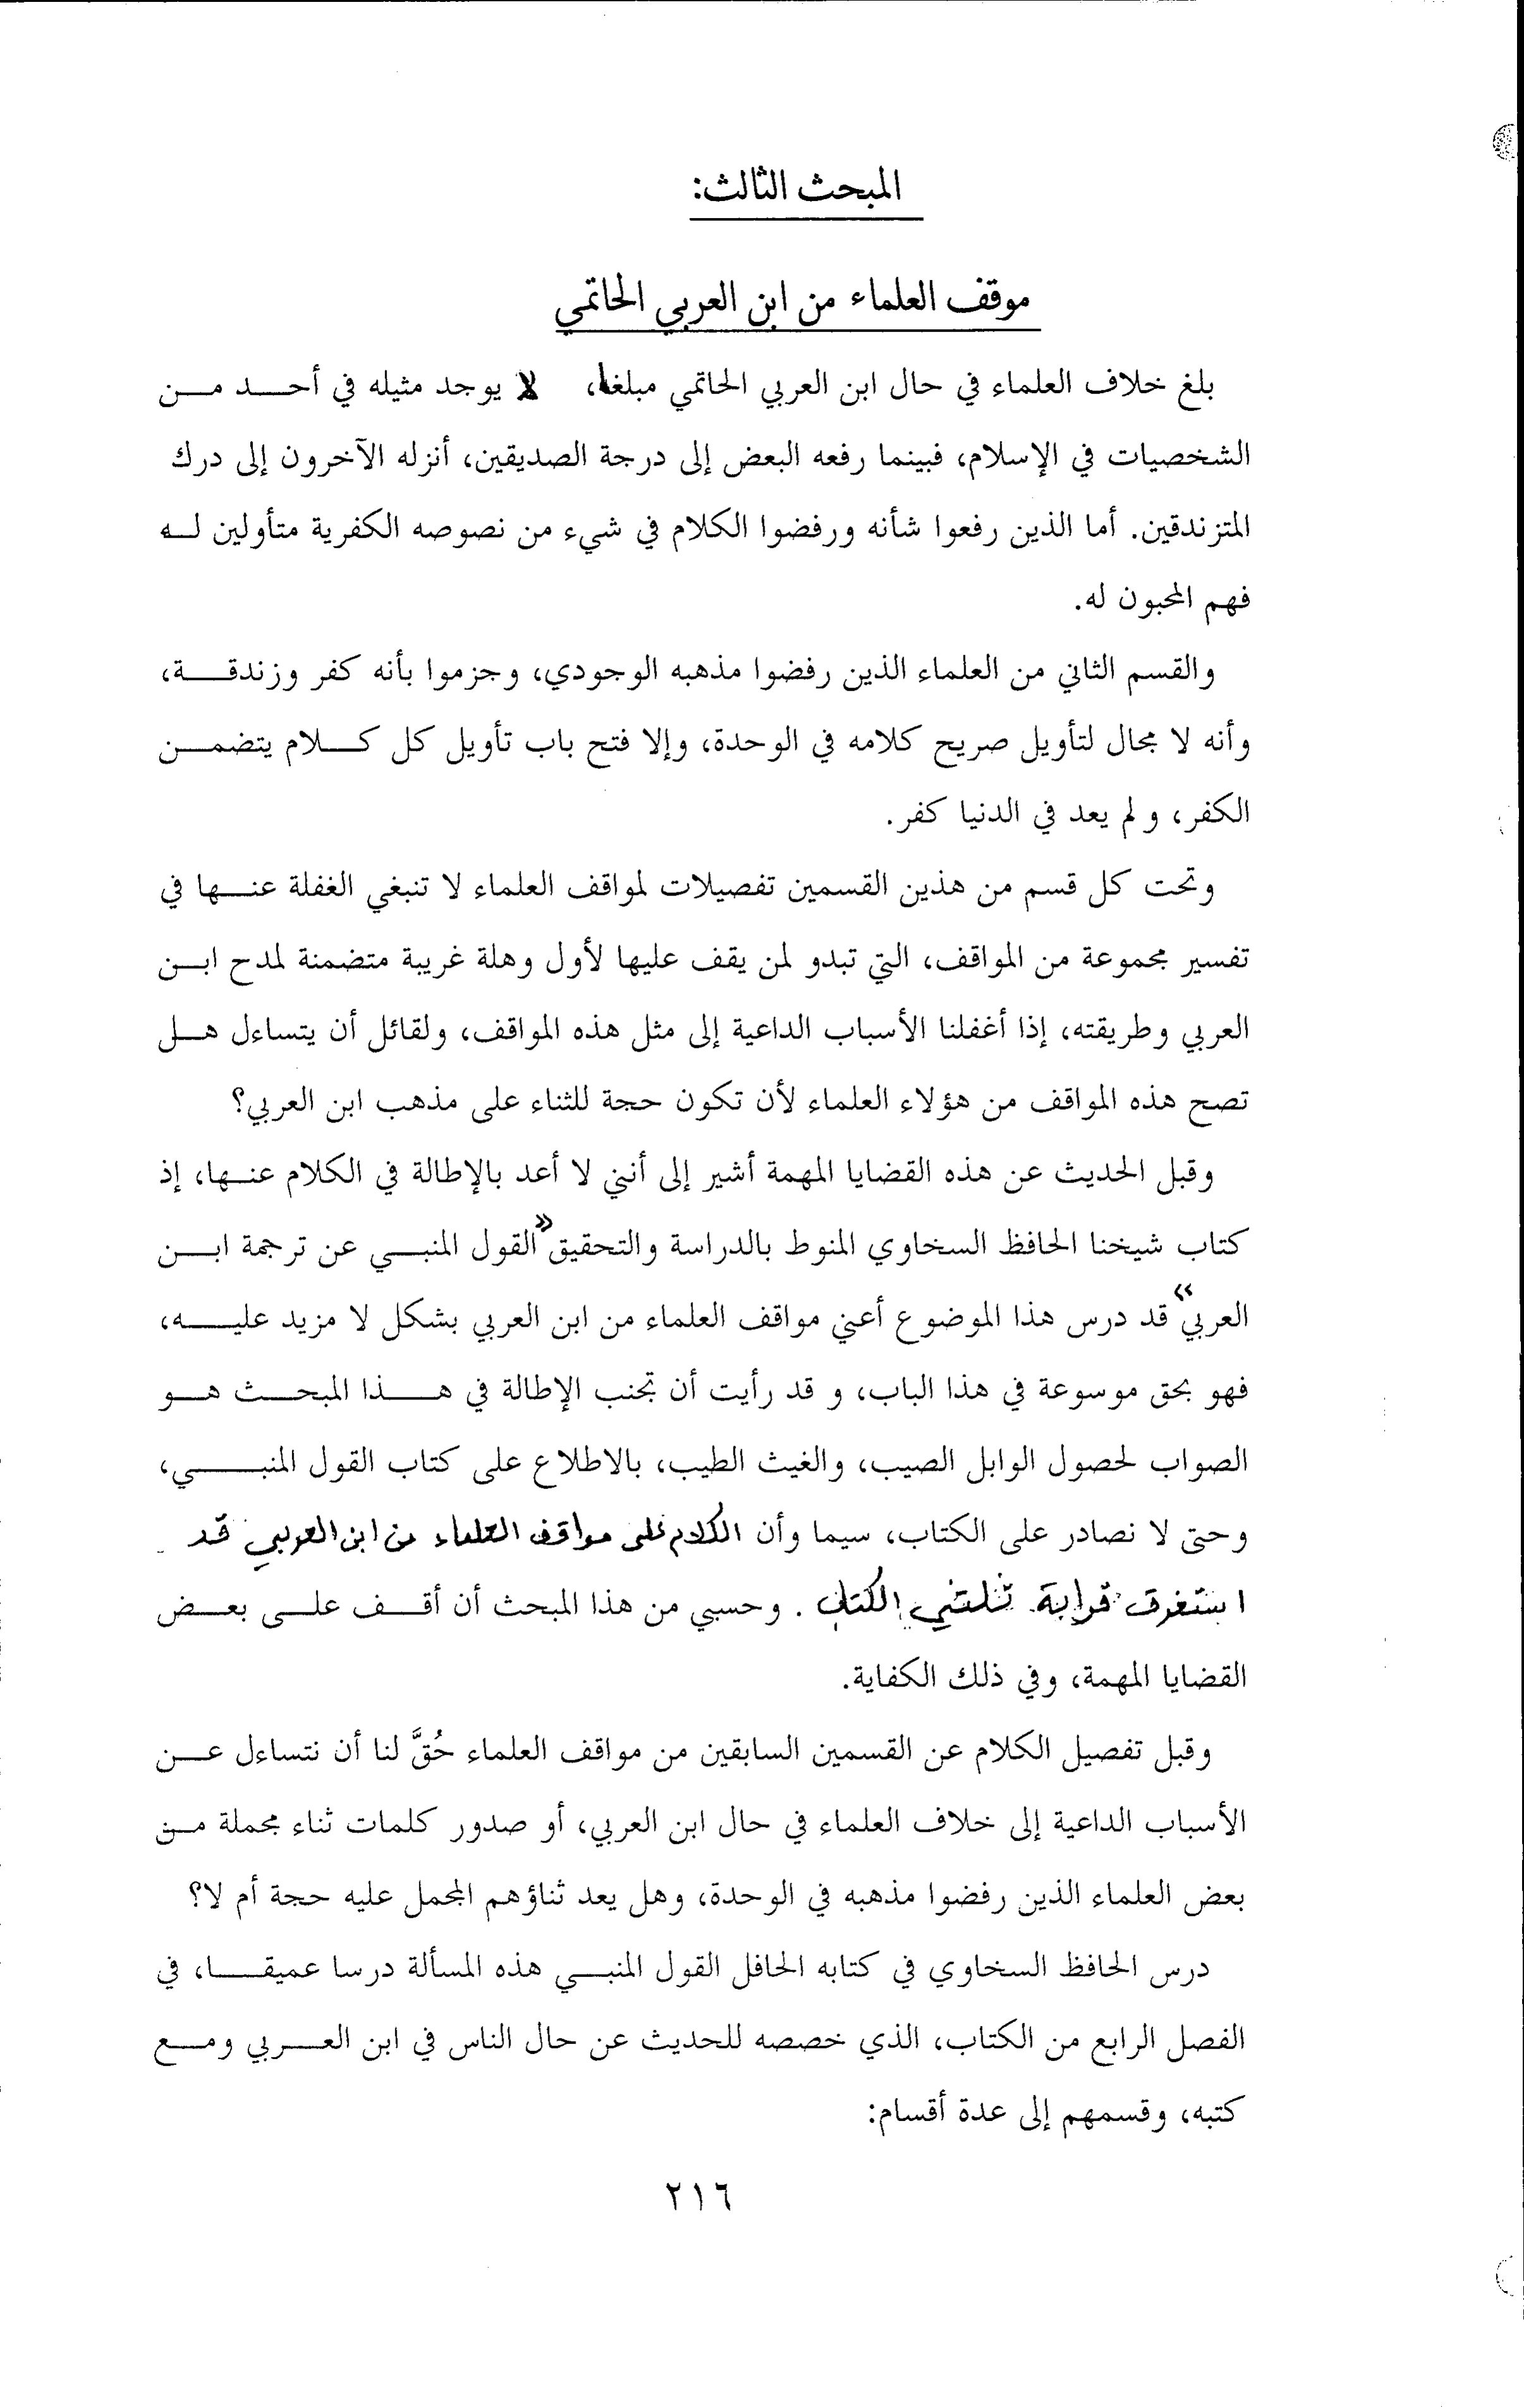 المبحث الثالث:
موقف العلماء من ابن العربي الحاتمي
بلغ خلاف العلماء في حال ابن العربي الحاتمي مبلغا، لا يوجد مثيله في أحد من
الشخصيات في الإسلام، فبينما رفعه البعض إلى درجة الصديقين، أنزله الآخرون إلى درك
المتزندقين. أما الذين رفعوا شأنه ورفضوا الكلام في شيء من نصوصه الكفرية متأولين له
فهم المحبون له.
والقسم الثاني من العلماء الذين رفضوا مذهبه الوجودي، وجزموا بأنه كفر وزندقة،
وأنه لا مجال لتأويل صريح كلامه في الوحدة، وإلا فتح باب تأويل كل كلام يتضمن
الكفر، ولم يعد في الدنيا كفر.
وتحت كل قسم من هذين القسمين تفصيلات لمواقف العلماء لا تنبغي الغفلة عنها في
تفسير مجموعة من المواقف، التي تبدو لمن يقف عليها لأول وهلة غريبة متضمنة لمدح ابن
العربي وطريقته، إذا أغفلنا الأسباب الداعية إلى مثل هذه المواقف، ولقائل أن يتساءل هل
تصح هذه المواقف من هؤلاء العلماء لأن تكون حجة للثناء على مذهب ابن العربي؟
وقبل الحديث عن هذه القضايا المهمة أشير إلى أنني لا أعد بالإطالة في الكلام عنها، إذ
كتاب شيخنا الحافظ السخاوي المنوط بالدراسة والتحقيق "القول المنبي عن ترجمة ابن
العربي" قد درس هذا الموضوع أعني مواقف العلماء من ابن العربي بشكل لا مزيد عليه،
فهو بحق موسوعة في هذا الباب، و قد رأيت أن تجنب الإطالة في هذا المبحث هو
الصواب لحصول الوابل الصيب، والغيث الطيب، بالاطلاع على كتاب القول المنبي،
وحتى لا نصادر على الكتاب، سيما وأن الكلام على مواقف العلماء من ابن العربي قد
استغرق قرابة ثلثي الكتاب. وحسبي من هذا المبحث أن أقف على بعض
القضايا المهمة، وفي ذلك الكفاية.
وقبل تفصيل الكلام عن القسمين السابقين من مواقف العلماء حُقَّ لنا أن نتساءل عن
الأسباب الداعية إلى خلاف العلماء في حال ابن العربي، أو صدور كلمات ثناء مجملة من
بعض العلماء الذين رفضوا مذهبه في الوحدة، وهل يعد ثناؤهم المجمل عليه حجة أم لا؟
درس الحافظ السخاوي في كتابه الحافل القول المنبي هذه المسألة درسا عميقا، في
الفصل الرابع من الكتاب، الذي خصصه للحديث عن حال الناس في ابن العربي ومع
كتبه، وقسمهم إلى عدة أقسام:
٢١٦